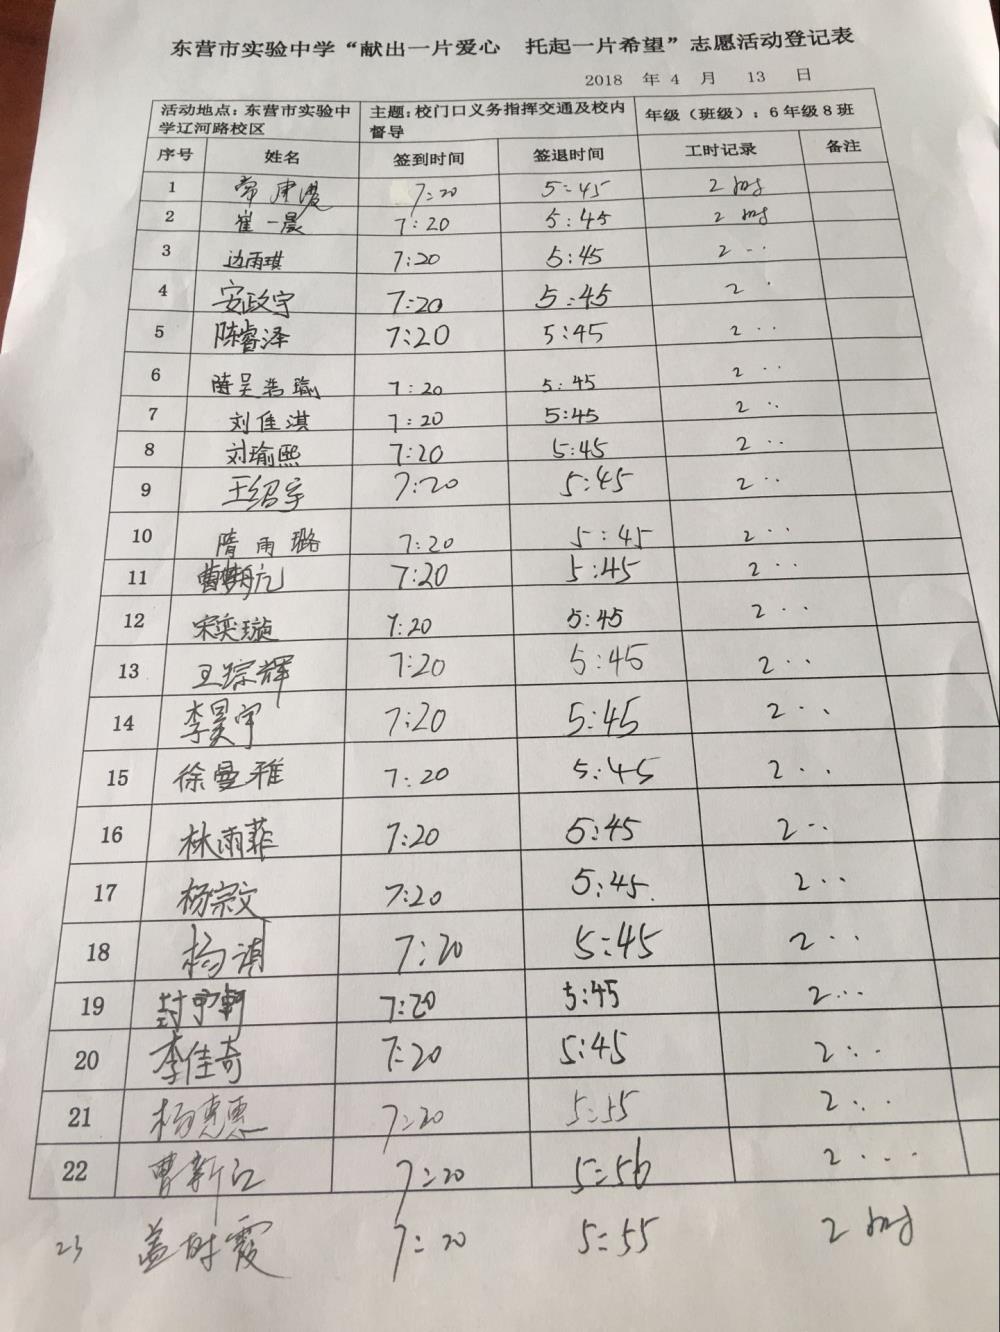 东营市实验中学“献出一片爱心 托起一片希望”志愿活动登记表
2018 年 4 月 13 日
活动地点：东营市实验中学辽河路校区 主题：校门口义务指挥交通及校内督导 年级（班级）：6年级8班
序号 姓名 签到时间 签退时间 工时记录 备注
1 7:20 5:45 2
2 崔一晨 7:20 5:45 2
3 边雨琪 7:20 5:45 2 ··
4 安政宇 7:20 5:45 2 ·
5 陈睿泽 7:20 5:45 2 ··
6 7:20 5:45 2 ··
7 刘佳淇 7:20 5:45 2 ··
8 刘瑜熙 7:20 5:45 2 ··
9 王绍宇 7:20 5:45 2 ··
10 隋雨璐 7:20 5:45 2 ··
11 7:20 5:45 2 ··
12 宋奕璇 7:20 5:45 2 ··
13 王琮辉 7:20 5:45 2 ··
14 李昊宇 7:20 5:45 2 ··
15 徐曼雅 7:20 5:45 2 ··
16 林雨菲 7:20 5:45 2 ··
17 杨宗文 7:20 5:45 2 ··
18 杨 7:20 5:45 2 ··
19 7:20 5:45 2 ··
20 李佳奇 7:20 5:45 2 ··
21 杨惠惠 7:20 5:55 2 ··
22 曹新江 7:20 5:56 2 ···
23 盖时霞 7:20 5:55 2